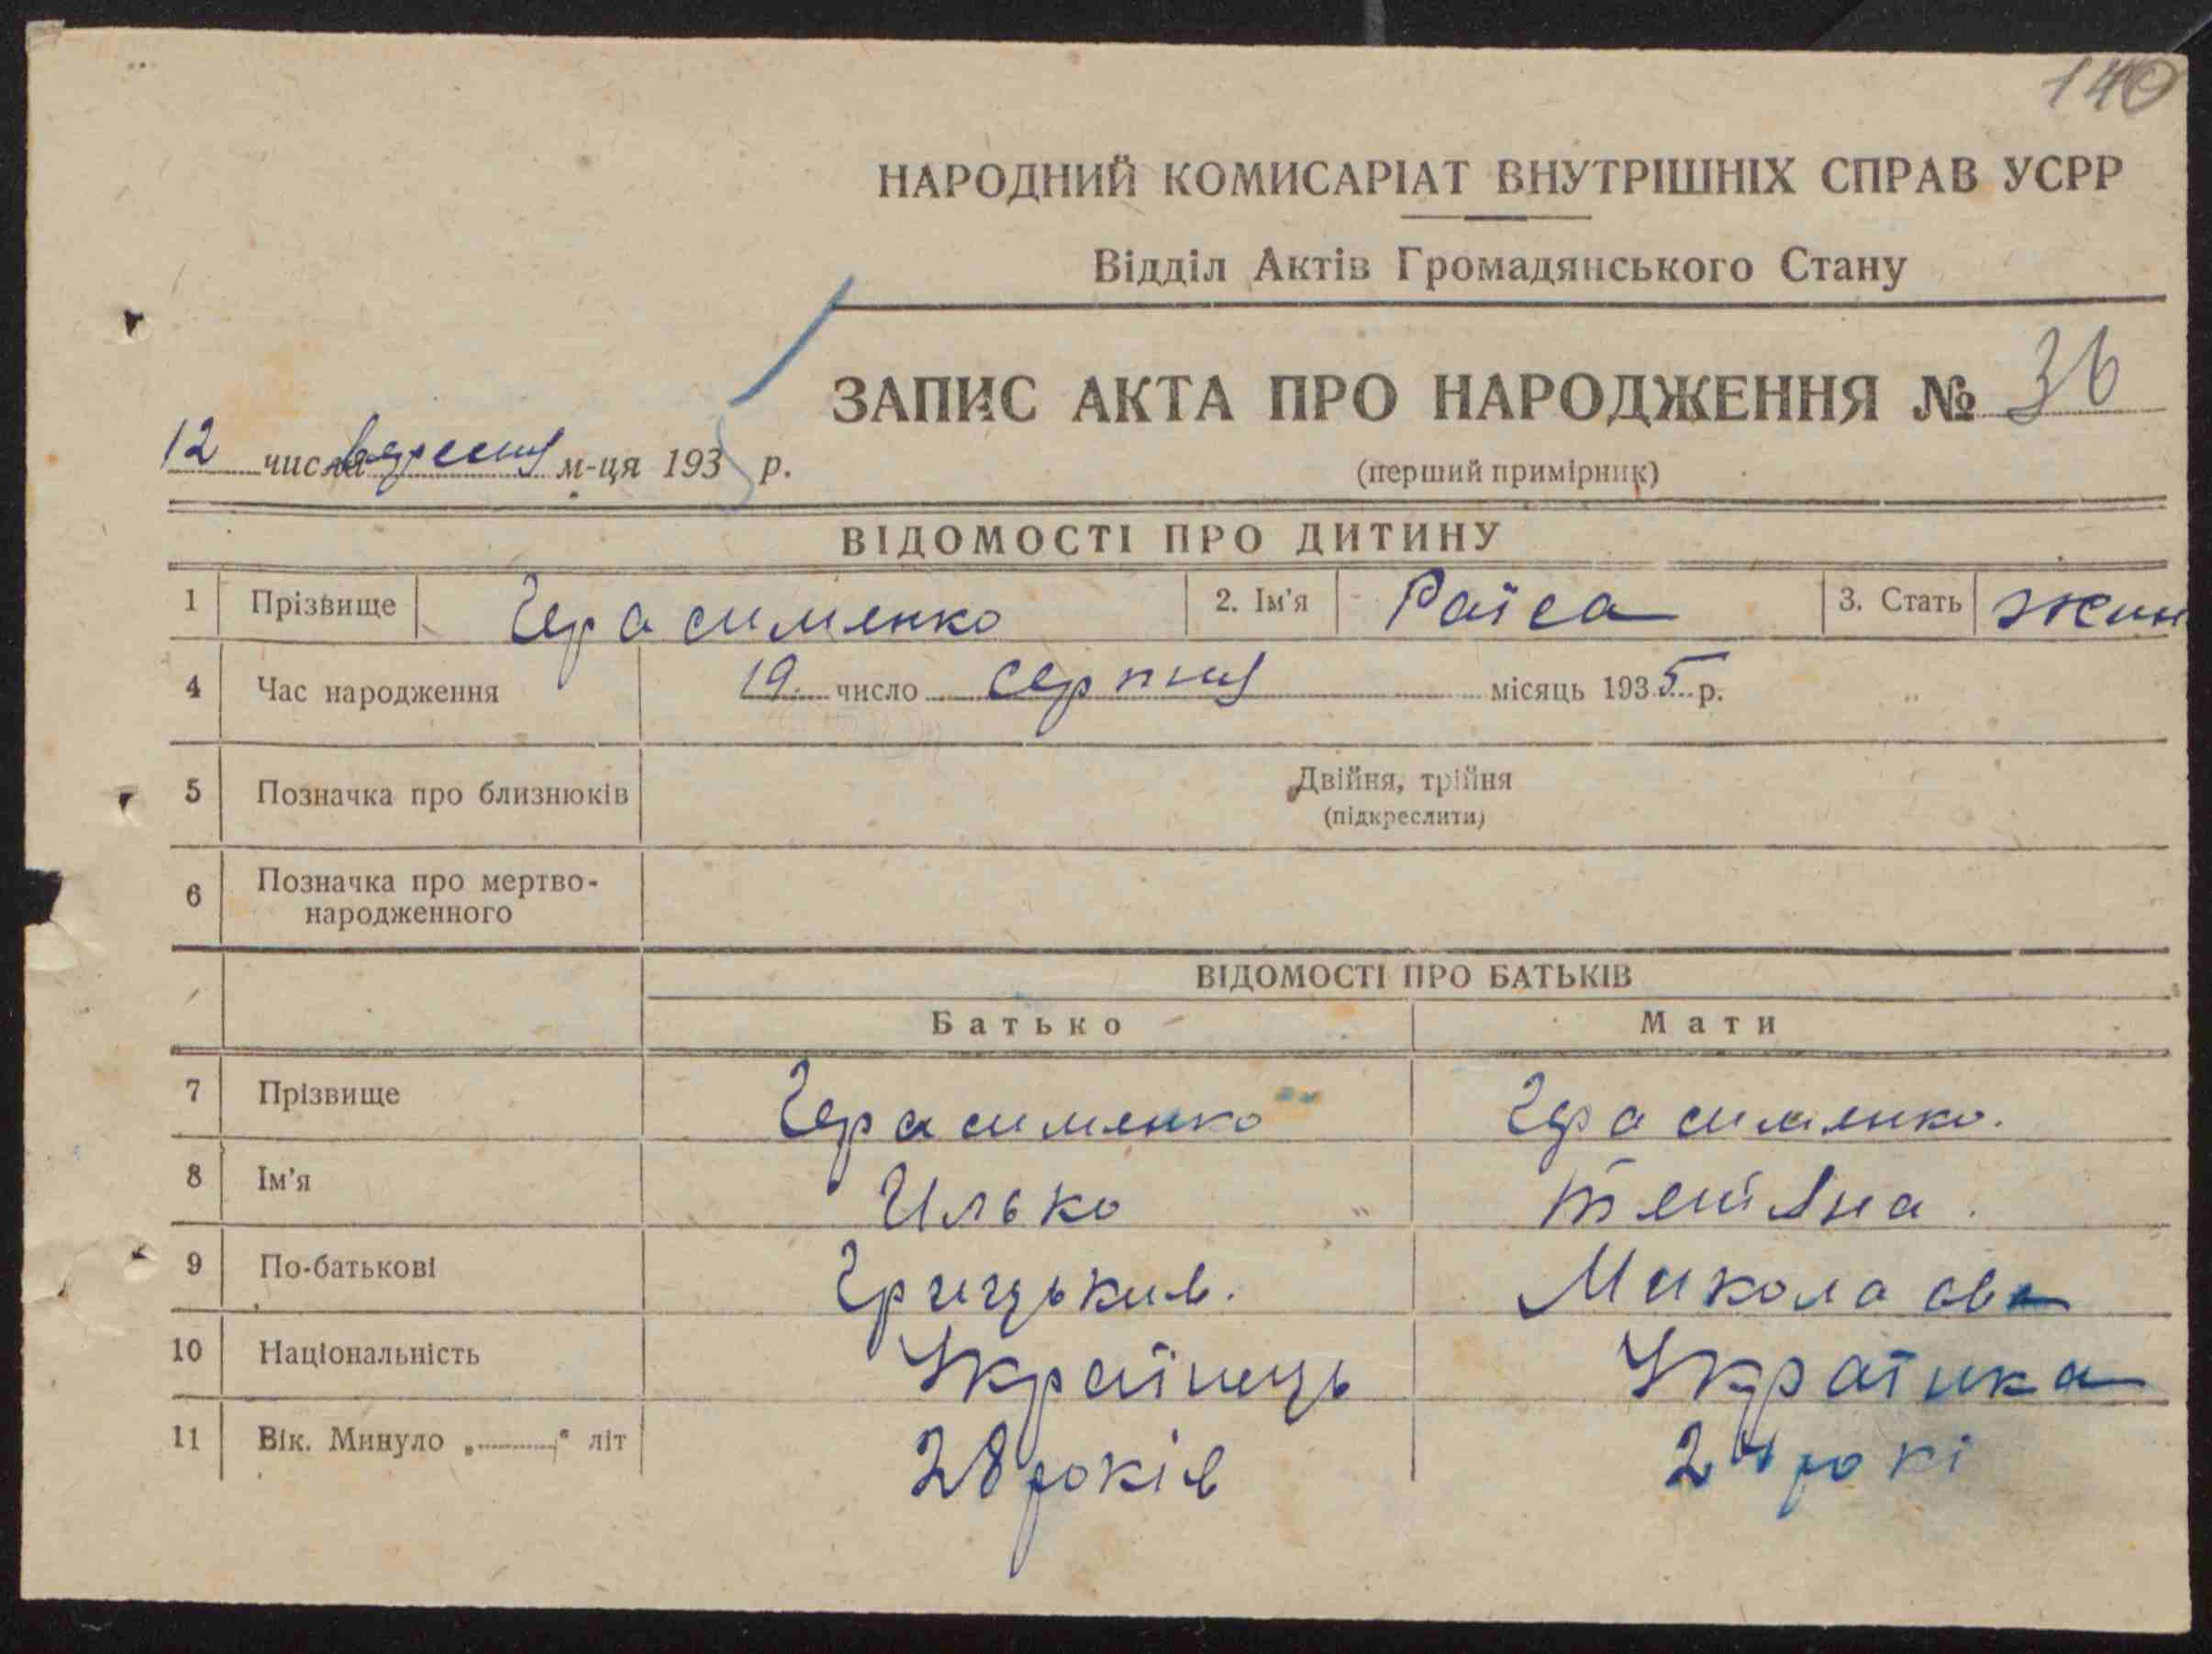 140
НАРОДНИЙ КОМИСАРІАТ ВНУТРІШНІХ СПРАВ УСРР
Відділ Актів Громадянського Стану
ЗАПИС АКТА ПРО НАРОДЖЕННЯ № 36
12 числа вересня м-ця 1935 р.
(перший примірник)
ВІДОМОСТІ ПРО ДИТИНУ
1 Прізвище Герасименко 2. Ім'я Раїса 3. Стать жін
4 Час народження 19. число серпня місяць 1935 р.
5 Позначка про близнюків Двійня, трійня
(підкреслити)
6 Позначка про мертво-
народженного
ВІДОМОСТІ ПРО БАТЬКІВ
Батько Мати
7 Прізвище Герасименко Герасименко.
8 Ім'я Илько Тетяна.
9 По-батькові Грицьков. Миколаовн
10 Національність Українець Українка
11 Вік. Минуло „ " літ 28 років 24 рокі